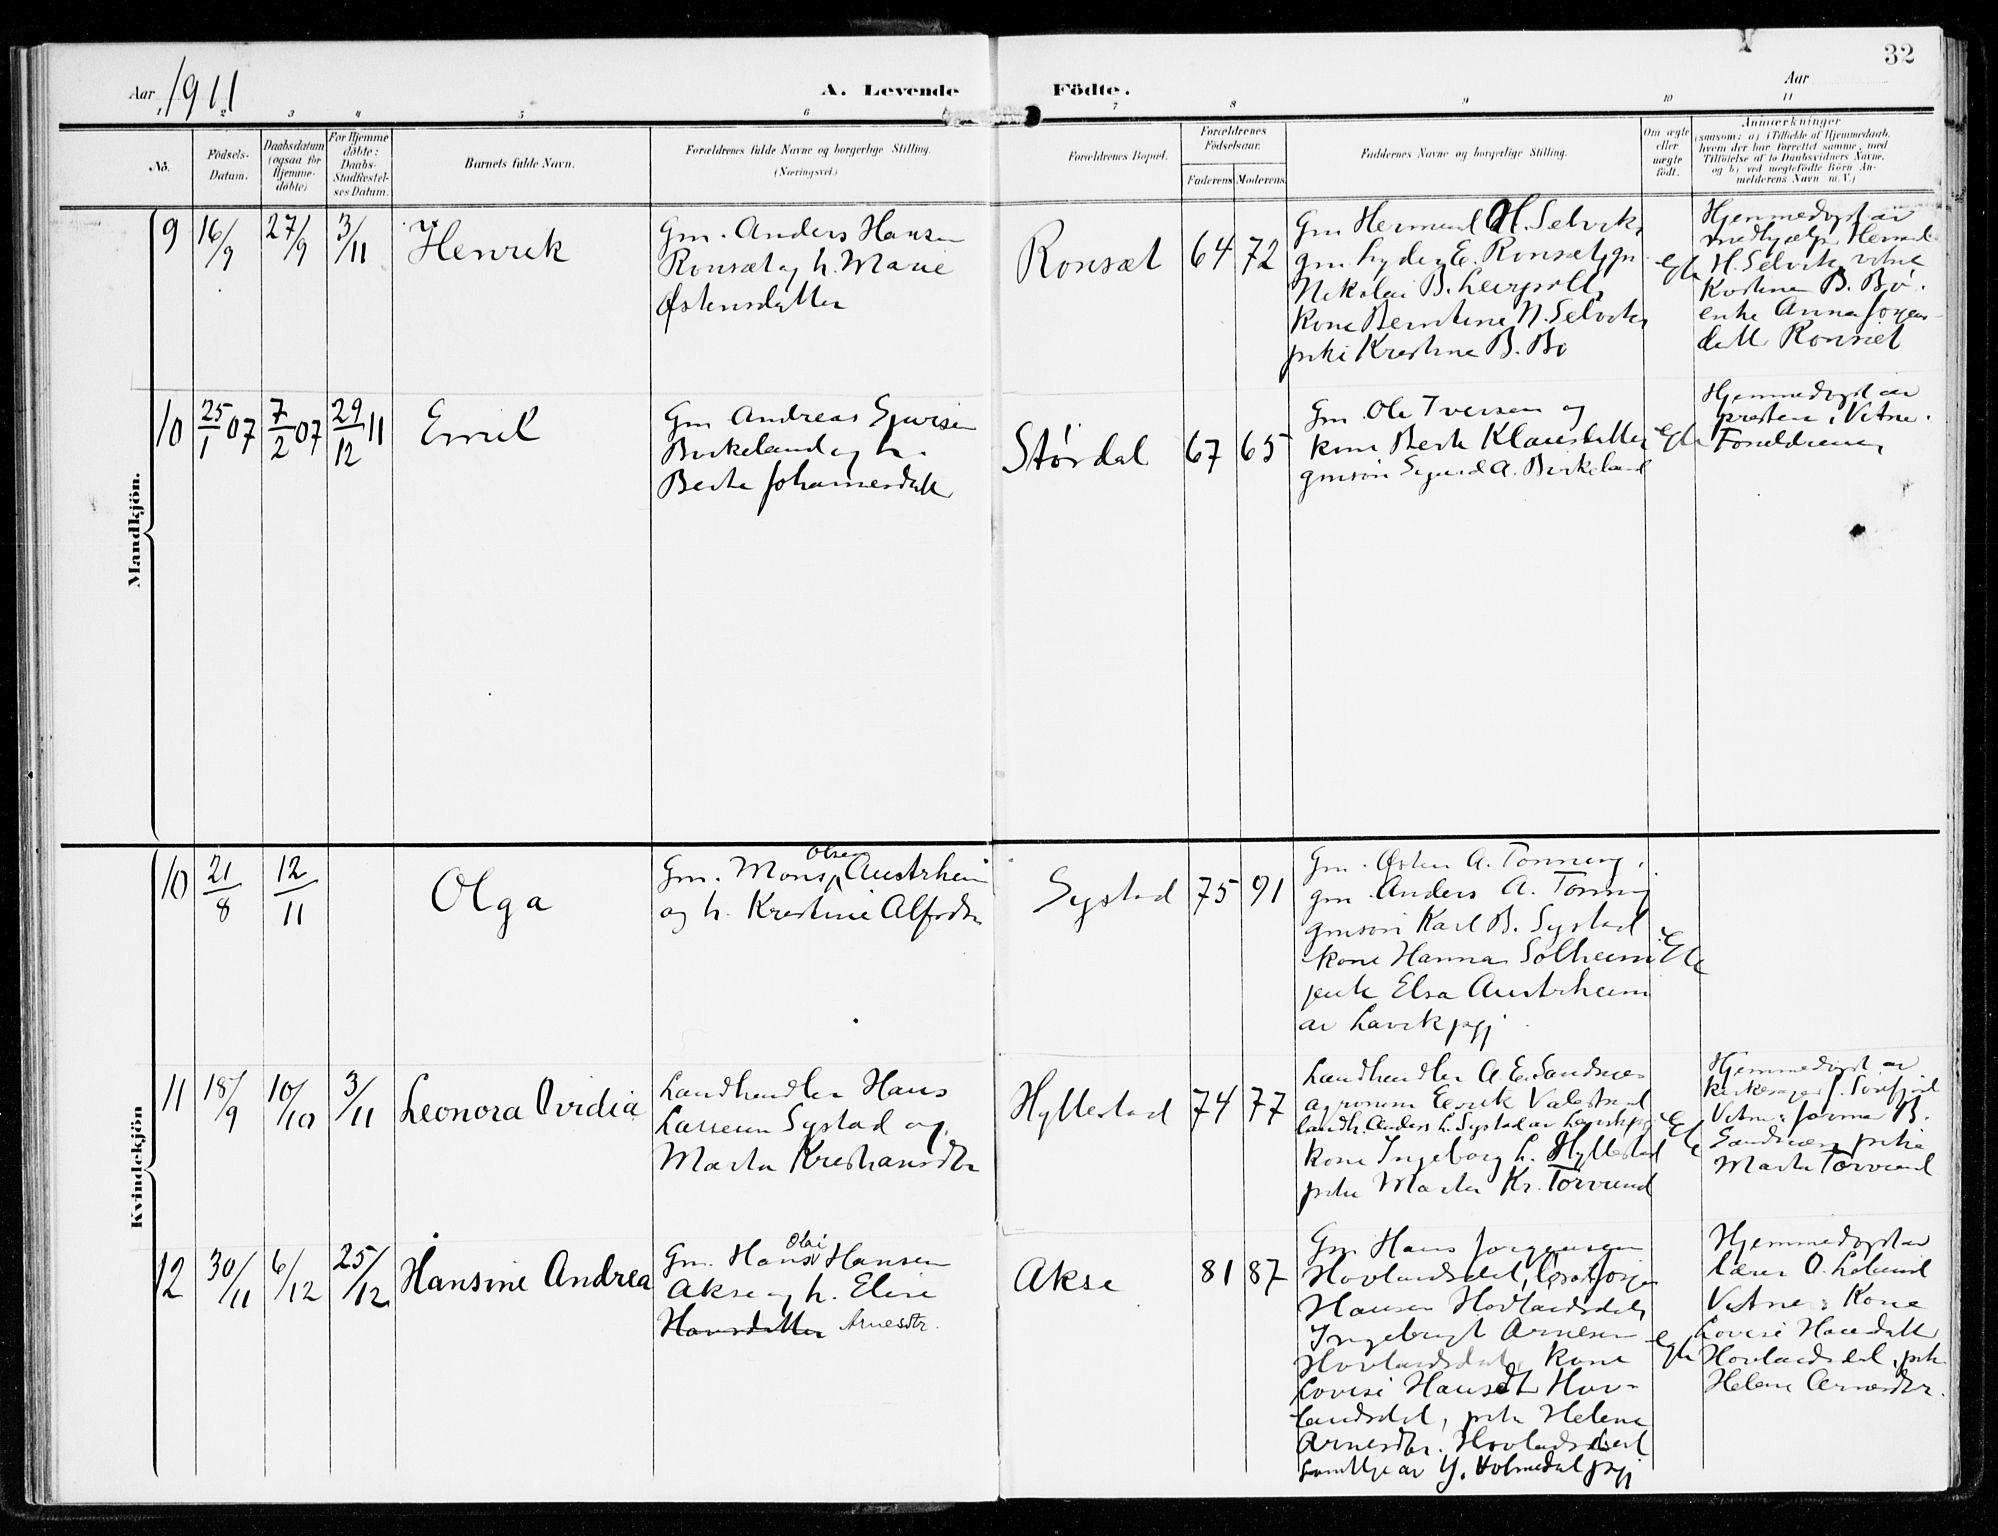 32
Aar 1911
A. Levende Födte.
Aar
1 2 3 4 5 6 7 8 9 10 11
No.
Födsels-
Datum.
Daabsdatum
(ogsaa for
Hjemme-
döbte)
For Hjemme
döbte:
Daabs-
Stadfæstel-
ses Datum.
Barnets fulde Navn.
Forældrenes fulde Navne og borgerlige Stilling.
(Næringsvei.)
Forældrenes Bopæl.
Forældrenes
Födselsaar.
Faderens Moderens
Faddernes Navne og borgerlige Stilling.
Om ægte
eller
uægte
födt.
Anmærkninger
(saasom: a) i Tilfælde af Hjemmedaab,
hvem der har forrettet samme, med
Tilföielse af to Daabsvidners Navne,
og b) ved uægtefödte Börn An-
melderens Navn m. V.)
Mandkjön.
9
16/9
27/9
3/11
Henrik
Gm. Anders Hansen
Ronset og h. Marie
Østensdatter
Ronset
64 72
Gm Hermund H. Selvik,
gm. Lyder E. Ronset, gm
Nikolai B. Leirpoll,
Kone Berntine N. Selvik,
pike Kristine B. Bø
egte
Hjemmedøpt av
H. Selvik, vitne
Kristine B. Bø.
enke Anna Jorgens-
datt. Ronset
10
25/1 07
7/2 07
29/12 11
Emil
Gm Andreas Sjursen
Birkeland og h.
Berta Johannesdatt
Størdal
67 65
Gm. Ole Iversen og
kone Berte Klausdatter
gmsøn Sigurd A. Birkeland
egte
Hjemmedøpt av
presten, Vitne:
Foreldrene
Kvindekjön
10
21/8
12/11
Olga
Gm. Mons Olsen Austrheim
og h. Kristine Alfsdtr
Systad
75 91
Gm. Østen A. Tonning,
gm. Anders A. Tonning
gmsøn Karl B. Systad
kone Hanna Solheim
pike Elsa Austrheim
av Lavik pgj.
Egte
11
18/9
10/10
3/11
Leonora Ovidia
Landhandler Hans
Larssen Systad og
Marta Kristiansdtr
Hyllestad
74 77
Landhandler A. E. Sandnes
agronom Eirik Valestrand
landh. Anders L. Systad av Lavik pgj
Kone Ingeborg L. Hyllestad
pike Marta Kr. Torvund
Egte
Hjemmedøpt av
kirkesanger J. Sørfjord
Vitne:
Sandnes, pike
Marta Torvund
12
30/11
6/12
25/12
Hansine Andrea
Gm. Hans Olai Hansen
Akse og h. Eline
Hansdatter Arnesdtr.
Akse
81 87
Gm Hans Jorgensen
Hovlandsdal,
Hansen Hovlandsdal,
Ingebrigt Arnesen
Hovlandsdal, kone
Lovise Hansdt Hov-
landsdal, pike Helene
Arnesdtr. Hovlandsdal
samtlige av Y. Holmedal pgj
egte
Hjemmedøpt av
lærer O. Løland
Vitne: Kone
Lovise Hansdatt
Hovlandsdal, pike
Helene Arnesdtr.